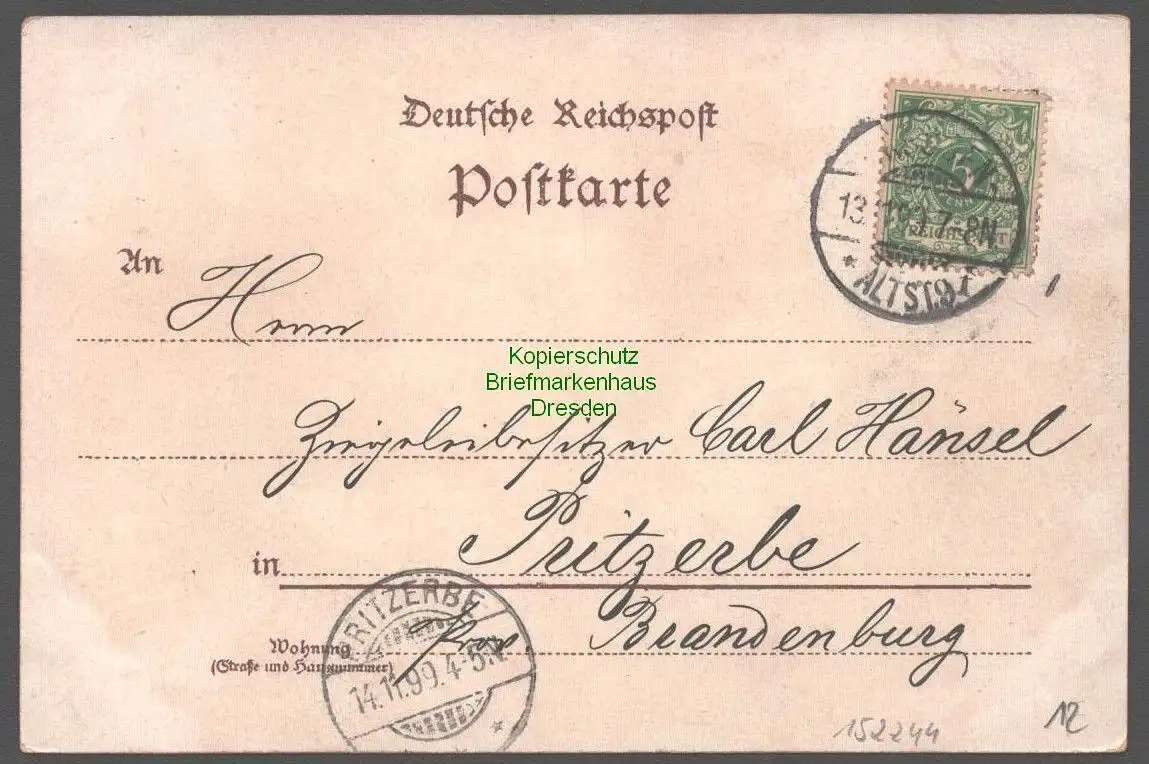 Deutsche Reichspost
Postkarte
5
REICHSPOST
13. 7-8N.
* ALTST. *
An Herrn
Kopierschutz
Briefmarkenhaus
Dresden
Ziegeleibesitzer Carl Hänsel
in Pritzerbe
Wohnung
(Straße und Hausnummer)
Prov. Brandenburg
PRITZERBE
14.11.99.4-5N.
*
152244
12